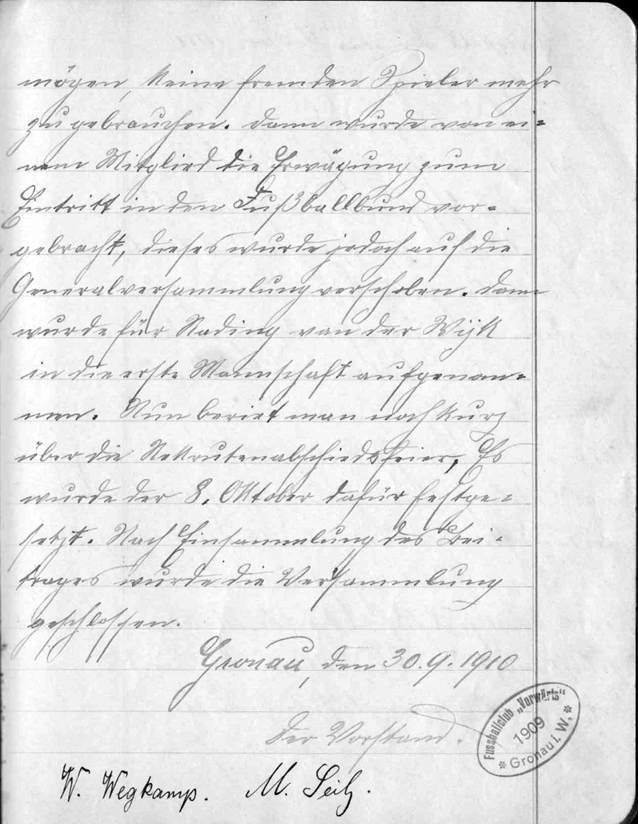 mögen, keine fremden Spieler mehr
zu gebrauchen. Dann wurde von ei=
nem Mitglied die Erwägung zum
Eintritt in den Fußballbund vor=
gebracht, dieses wurde jedoch auf die
Generalversammlung verschoben. Dann
wurde für Nading van der Wijk
in die erste Mannschaft aufgenom=
men. Nun beriet man noch kurz
über die Rekrutenabschiedsfeier, Es
wurde der 8. Oktober dafür festge=
setzt. Nach Einsammlung des Bei=
trages wurde die Versammlung
geschlossen.
Gronau, den 30.9.1910
Der Vorstand.
Fussballclub „Vorwärts“
1909
* Gronau i. W. *
W. Wegkamp. M. Seitz.